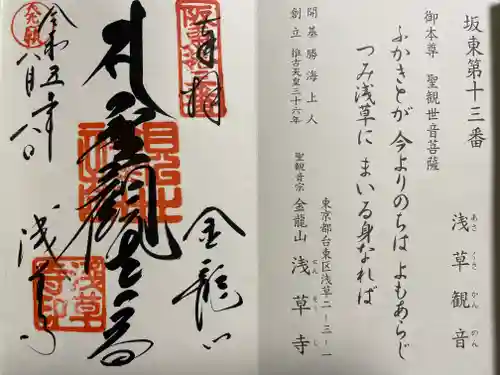 坂東第十三番
浅草観音
あさくさかんのん
御本尊 聖観世音菩薩
ふかきとが 今よりのちは よもあらじ
つみ浅草に まいる身なれば
開基 勝海上人
創立 推古天皇三十六年
東京都台東区浅草二ー三ー一
聖観音宗 金龍山 浅草寺
せんそうじ
坂東
奉拝
聖観世音
金龍山
浅草寺
浅草寺印
令和五年八月八日